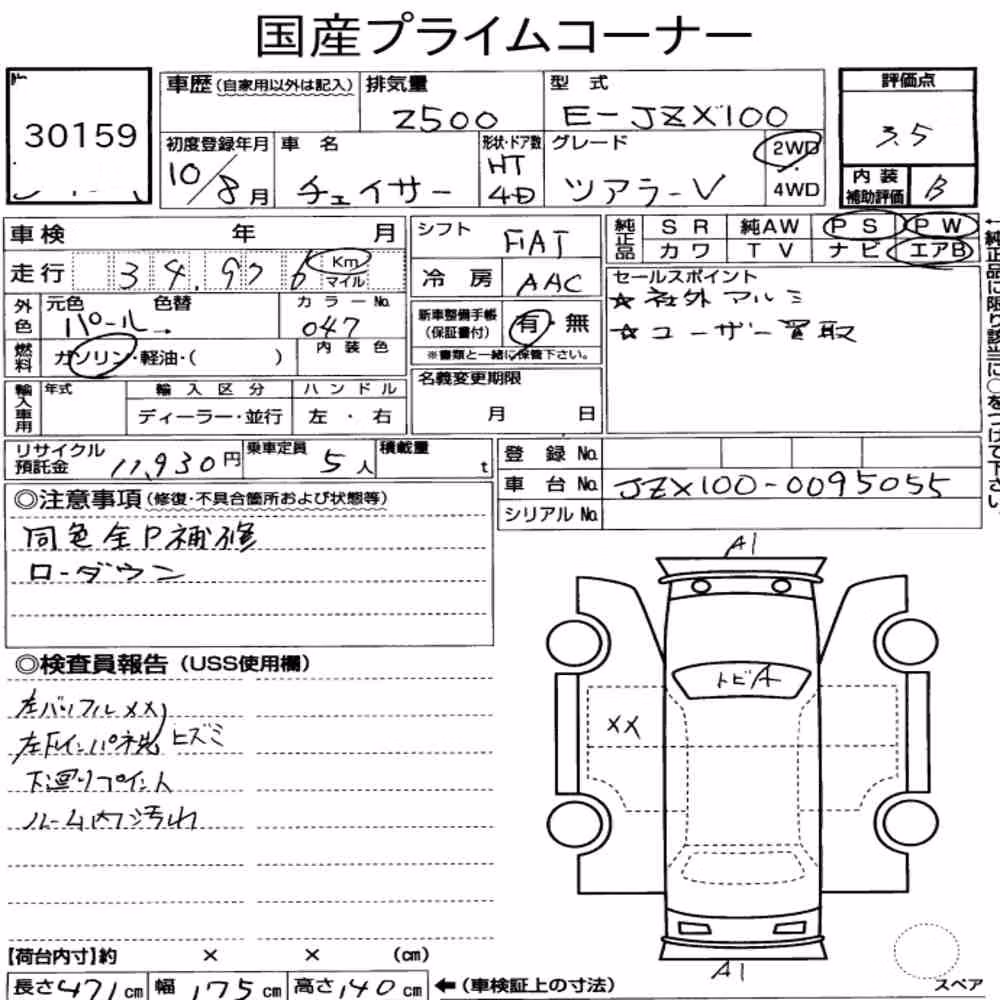 国産プライムコーナー
30159
車歴(自家用以外は記入) 排気量 2500 型式 E-JZX100
評価点 3.5
初度登録年月 10/8月 車名 チェイサー 形状・ドア数 HT 4D グレード ツアラーV 2WD 4WD
内装補助評価 B
車検 年 月
走行 34,976 Km マイル
外色 元色 パール→ 色替 カラーNo. 047
燃料 ガソリン・軽油・( ) 内装色
輸入車用 年式 輸入区分 ディーラー・並行 ハンドル 左・右
シフト FIAT
冷房 AAC
新車整備手帳(保証書付) 有・無
※書類と一緒に保管下さい。
名義変更期限 月 日
純正品 SR 純AW PS PW
カワ TV ナビ エアB
←純正品に限り該当に○をつけて下さい。
セールスポイント
☆社外アルミ
☆ユーザー買取
リサイクル預託金 11,930円 乗車定員 5人 積載量 t
登録No.
車台No. JZX100-0095055
シリアルNo.
◎注意事項(修復・不具合箇所および状態等)
同色全P補修
ローダウン
◎検査員報告(USS使用欄)
下廻りペイント
ルーム内汚れ
A1
トビA
XX
A1
スペア
【荷台内寸】約 × × (cm)
長さ471cm 幅175cm 高さ140cm ←(車検証上の寸法)